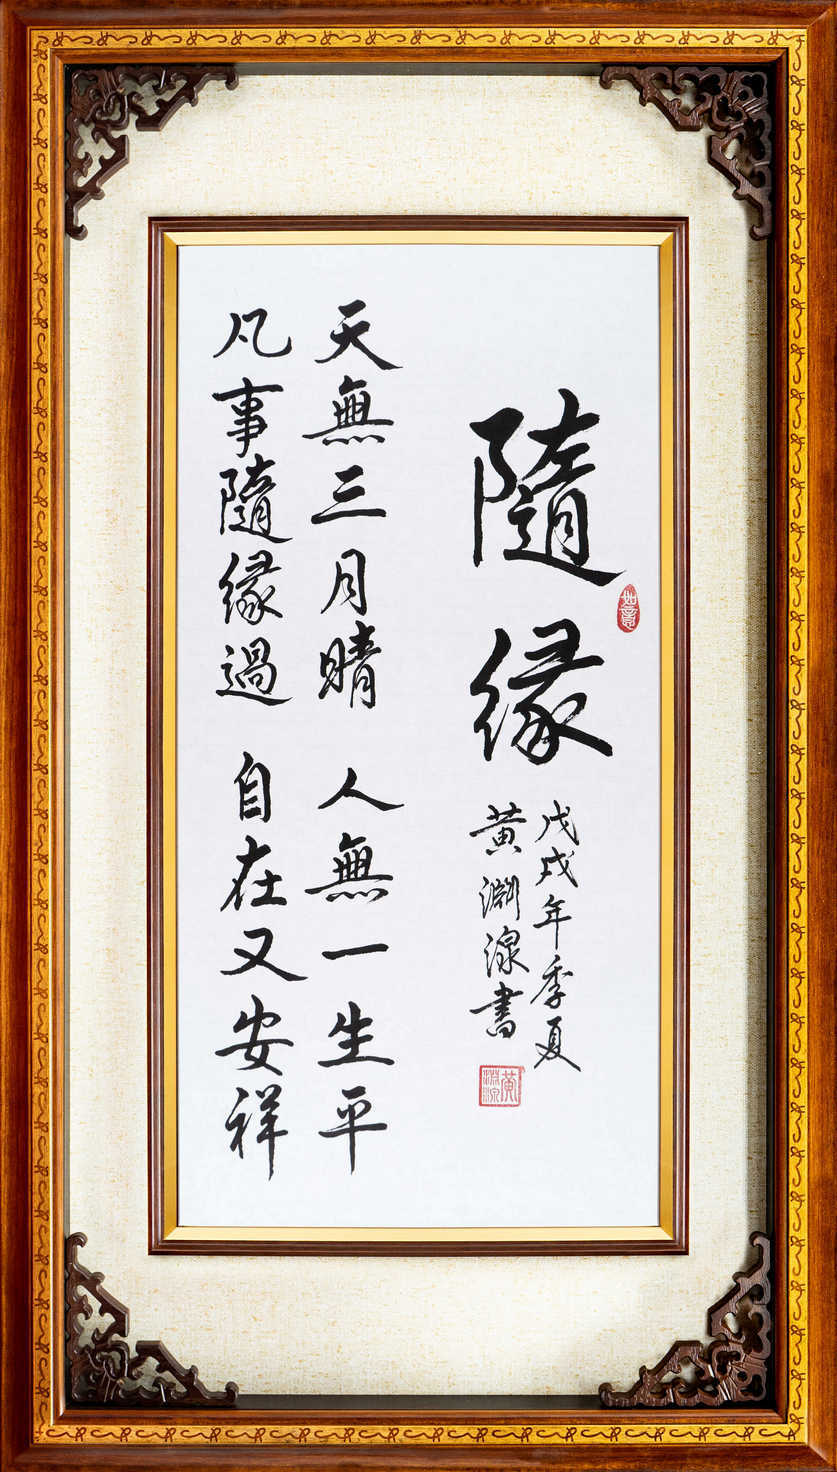 隨緣
如意
戊戌年季夏
黃淵湶書
天無三月晴 人無一生平
凡事隨緣過 自在又安祥